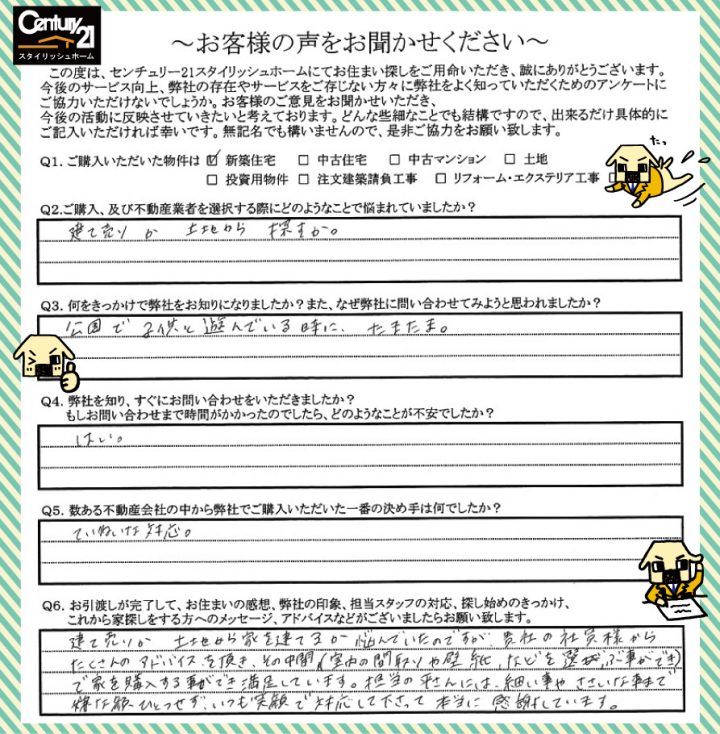 Century 21
スタイリッシュホーム
～お客様の声をお聞かせください～
この度は、センチュリー21スタイリッシュホームにてお住まい探しをご用命いただき、誠にありがとうございます。
今後のサービス向上、弊社の存在やサービスをご存じない方々に弊社をよく知っていただくためのアンケートに
ご協力いただけないでしょうか。お客様のご意見をお聞かせいただき、
今後の活動に反映させていきたいと考えております。どんな些細なことでも結構ですので、出来るだけ具体的に
ご記入いただければ幸いです。無記名でも構いませんので、是非ご協力をお願い致します。
たっ
Q1. ご購入いただいた物件は ☑ 新築住宅 □ 中古住宅 □ 中古マンション □ 土地
□ 投資用物件 □ 注文建築請負工事 □ リフォーム・エクステリア工事
Q2.ご購入、及び不動産業者を選択する際にどのようなことで悩まれていましたか？
建て売りか 土地から 探すか。
Q3. 何をきっかけで弊社をお知りになりましたか？また、なぜ弊社に問い合わせてみようと思われましたか？
公園で子供と遊んでいる時に、たまたま。
Q4. 弊社を知り、すぐにお問い合わせをいただきましたか？
もしお問い合わせまで時間がかかったのでしたら、どのようなことが不安でしたか？
はい。
Q5. 数ある不動産会社の中から弊社でご購入いただいた一番の決め手は何でしたか？
ていねいな対応。
Q6. お引渡しが完了して、お住まいの感想、弊社の印象、担当スタッフの対応、探し始めのきっかけ、
これから家探しをする方へのメッセージ、アドバイスなどがございましたらお願い致します。
建て売りか 土地から家を建てるか 悩んでいたのですが、貴社の社員様から
たくさんのアドバイスを頂き、その中間(室内の間取りや壁紙、などを選ぶ事ができ)
で家を購入する事ができ満足しています。担当の さんには、細い事やささいな事まで
嫌な顔ひとつせず、いつも笑顔で対応して下さって本当に感謝しています。